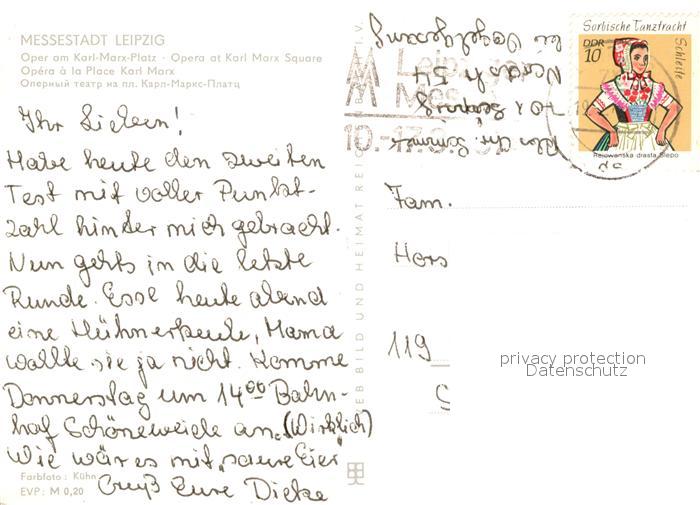 MESSESTADT LEIPZIG
Oper am Karl-Marx-Platz · Opera at Karl Marx Square
Opéra à la Place Karl Marx
Оперный театр на пл. Карл-Маркс-Платц
Ihr Lieben!
Habe heute den zweiten
Test mit voller Punkt-
zahl hinter mich gebracht.
Nun gehts in die letzte
Runde. Esse heute abend
eine Hühnerkeule, Mama
wollte sie ja nicht. Komme
Donnerstag um 14⁰⁰ Bahn-
hof Schöneweide an. (Wirklich)
Wie wäres mit „saure Eier“
Gruß Eure Dicke
Farbfoto: Kühn
EVP: M 0,20
VEB BILD UND HEIMAT REICHENBACH I. V.
bei
701 Leipzig
Leipziger
Messe
10.-17.3.
Sorbische Tanztracht
Schleife
DDR
10
Rejowanska drasta Slepo
Fam.
Hors
119
privacy protection
Datenschutz